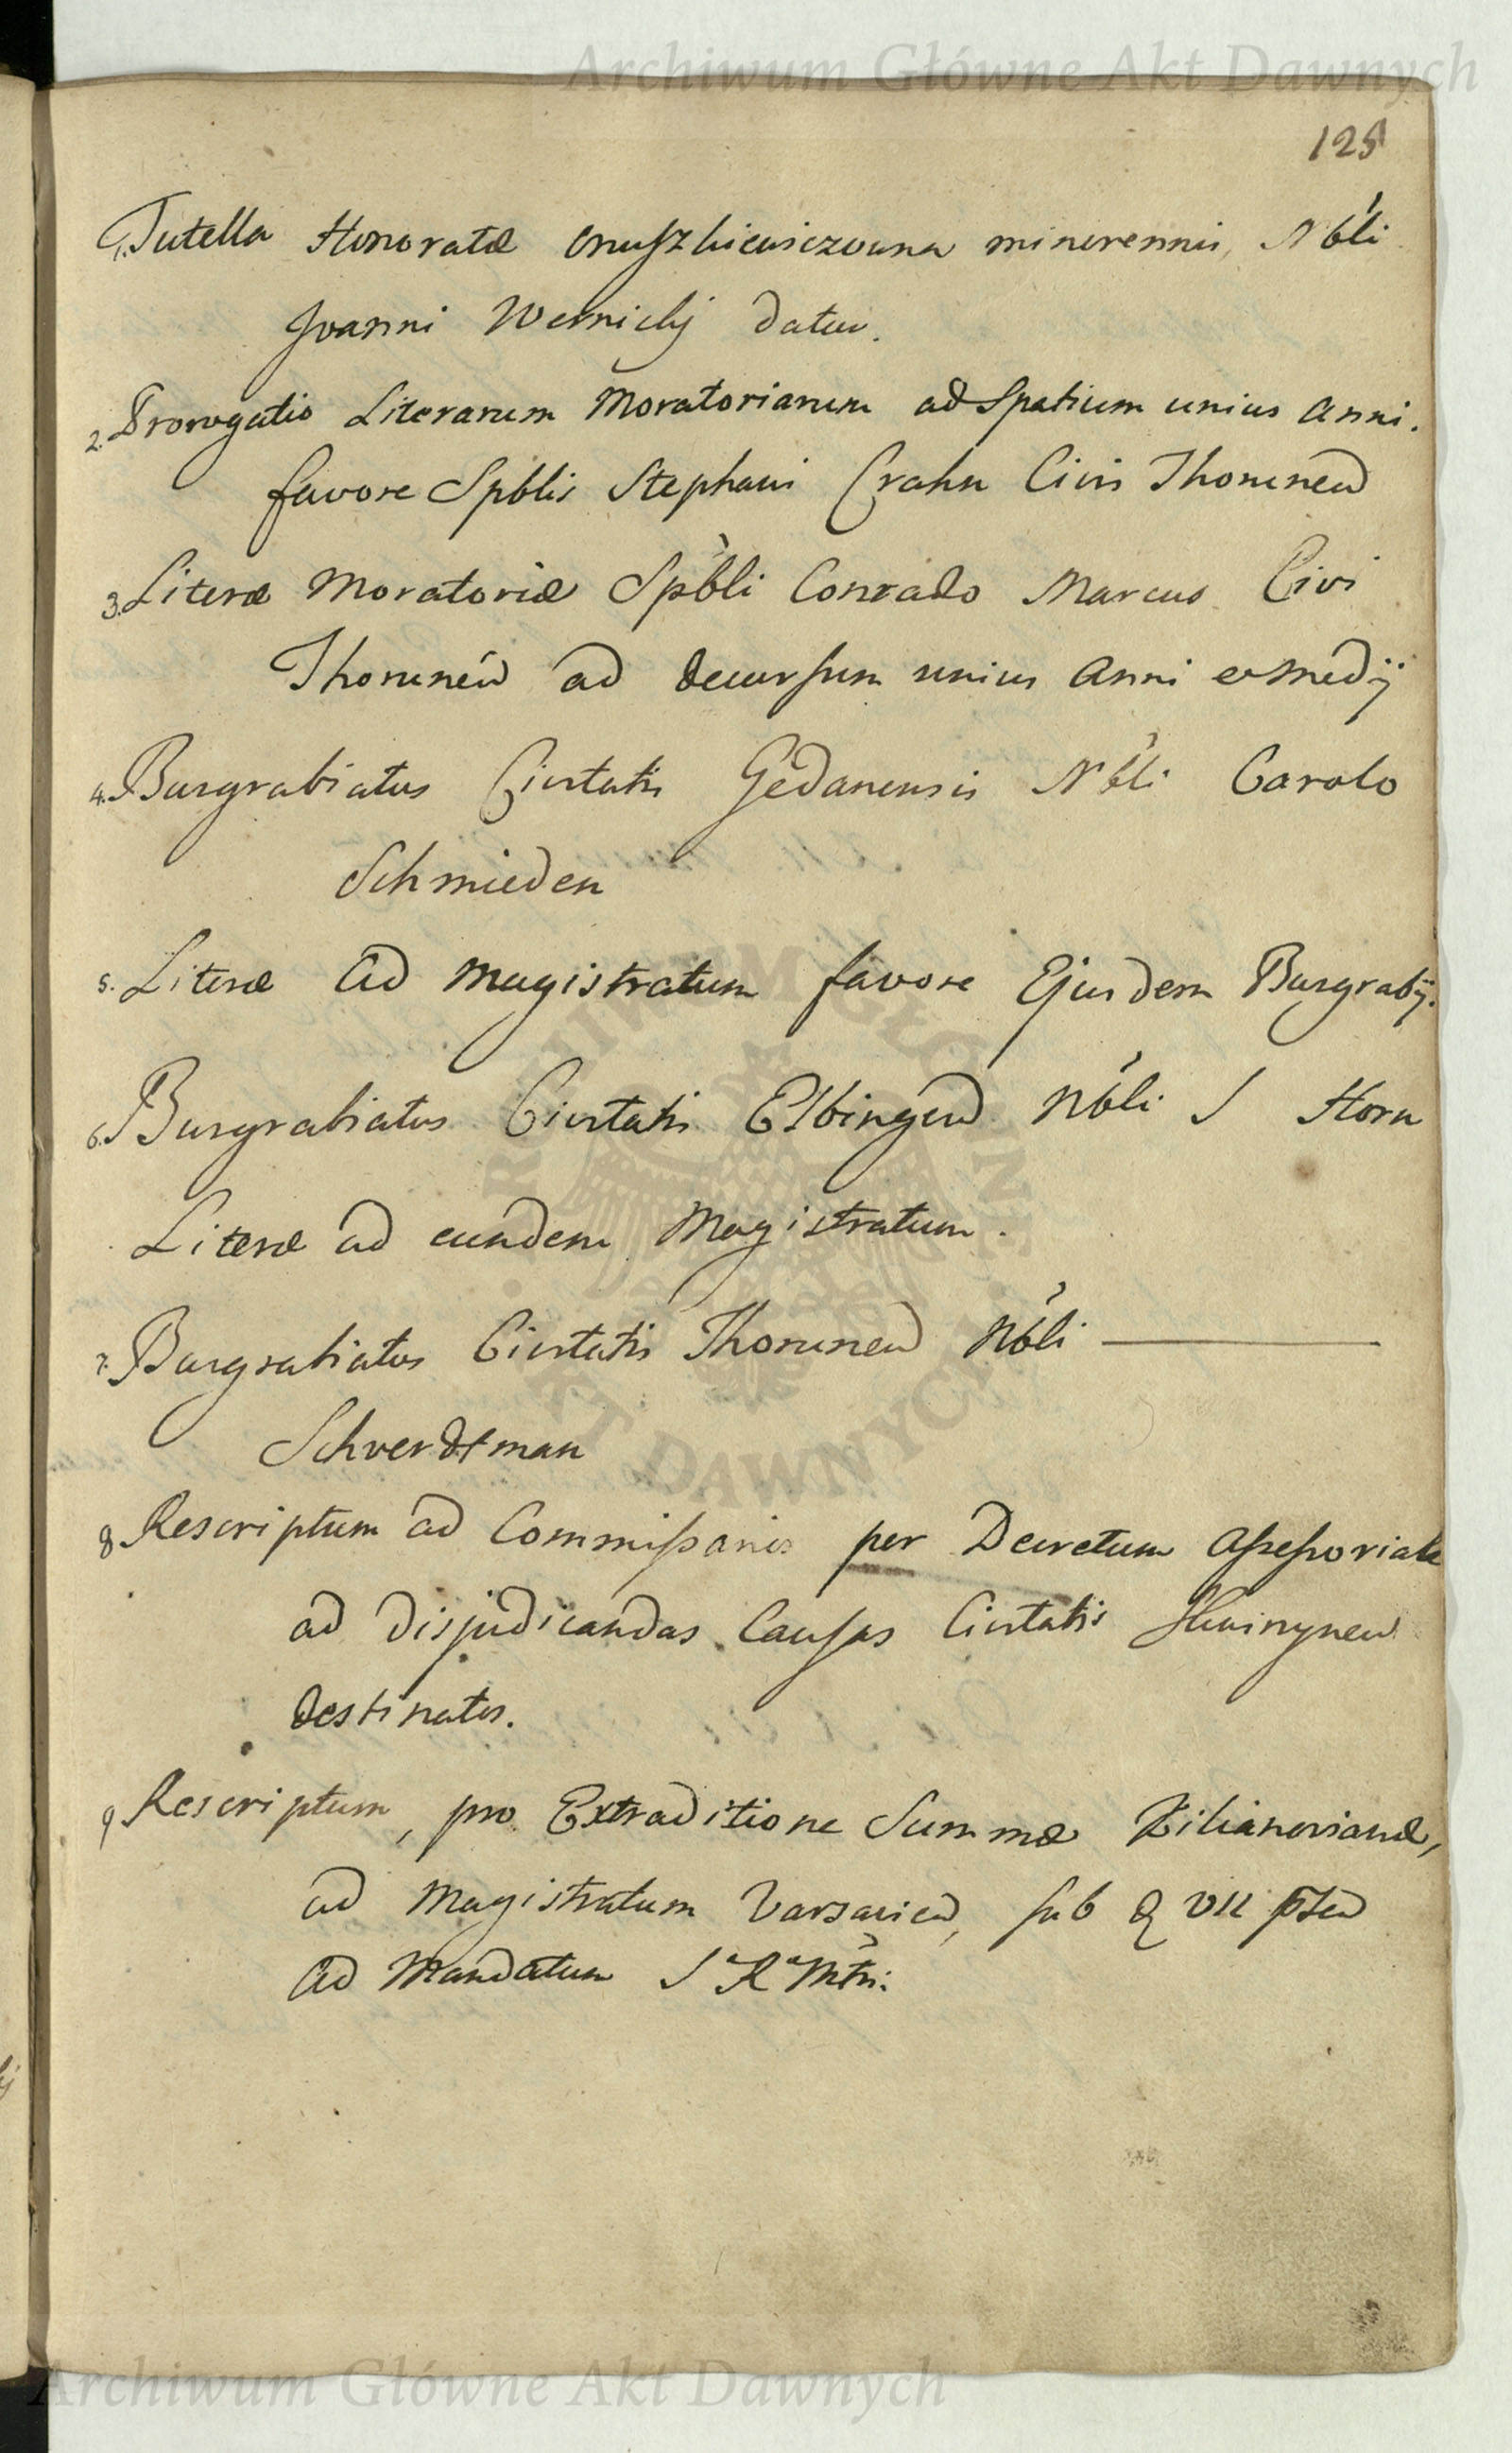 Archiwum Główne Akt Dawnych
125
1. Tutella Honoratæ Onuszkiewiczowna minorennii, Nbli
Joanni Wernickj datur.
2. Prorogatio Literarum Moratoriarum ad Spatium unius Anni.
favore Spblis Stephani Crahn Civis Thorunen
3. Literæ Moratoriæ Spbli Conrado Marcus Civi
Thorunen ad decursum unius Anni et medij
4. Burgrabiatus Civitatis Gedanensis Nbli Carolo
Schmieden
5. Literæ Ad Magistratum favore Ejusdem Burgrabij.
6. Burgrabiatus Civitatis Elbingen Nbli J Horn
Literæ ad eundem Magistratum.
7. Burgrabiatus Civitatis Thorunen Nbli —
Schverdtman
8 Rescriptum ad Commissarios per Decretum Assessoriale
ad disjudicandas Causas Civitatis
destinatos.
9 Rescriptum, pro Extraditione Summæ Kilianovianæ,
ad Magistratum Varsavien, sub VII
Ad Mandatum S R Mtis.
ARCHIWUM GŁÓWNE AKT DAWNYCH
Archiwum Główne Akt Dawnych